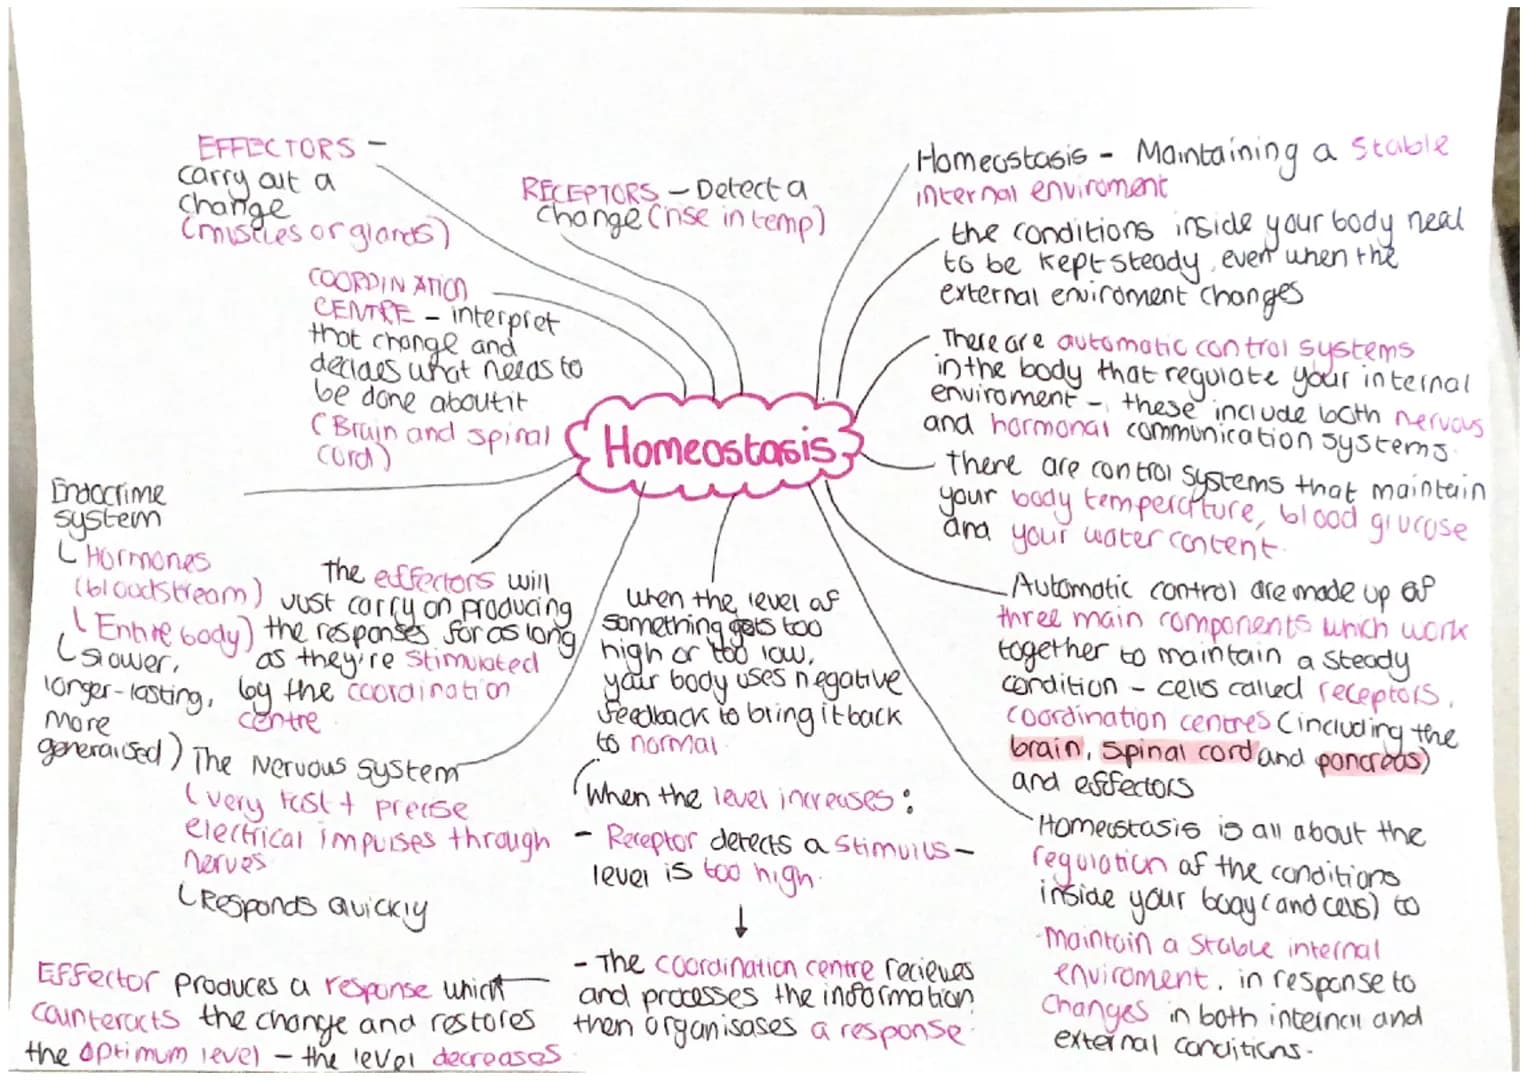 EFFECTORS -
carry out a
change
(mustles or glands)
RECEPTORS - Detect a
change (rise in temp)
COORDINATION
CENTRE - interpret
that change and
decides what needs to
be done about it
(Brain and spinal
cord)
Homeostasis
Homeostasis - Maintaining a stable
internal enviroment
the conditions inside your body need
to be kept steady, even when the
external enviroment changes
There are automatic control systems
in the body that regulate your internal
enviroment - these include both nervous
and hormonal communication systems.
there are control systems that maintain
your body temperature, blood glucose
and your water content.
Automatic control are made up of
three main components which work
together to maintain a steady
condition - cells called receptors,
coordination centres (including the
brain, spinal cord and pancreas)
and effectors
Homeostasis is all about the
regulation of the conditions
inside your body (and cells) to
maintain a stable internal
enviroment, in response to
changes in both internal and
external conditions.
Endocrime
system
Hormones
(bloodstream)
Entire body)
slower,
longer-lasting,
more
generalised)
the effectors will
just carry on producing
the responses for as long
as they're stimulated
by the coordination
centre
The Nervous system
very fast + precise
electrical impulses through
nerves
Responds Quickly
when the level of
something gets too
high or too low,
your body uses negative
feedback to bring it back
to normal.
When the level increases:
- Receptor detects a stimulus -
level is too high.
↓
- The coordination centre recieves
and processes the information,
then organisases a response.
Effector produces a response which
counteracts the change and restores
the optimum level - the level decreases